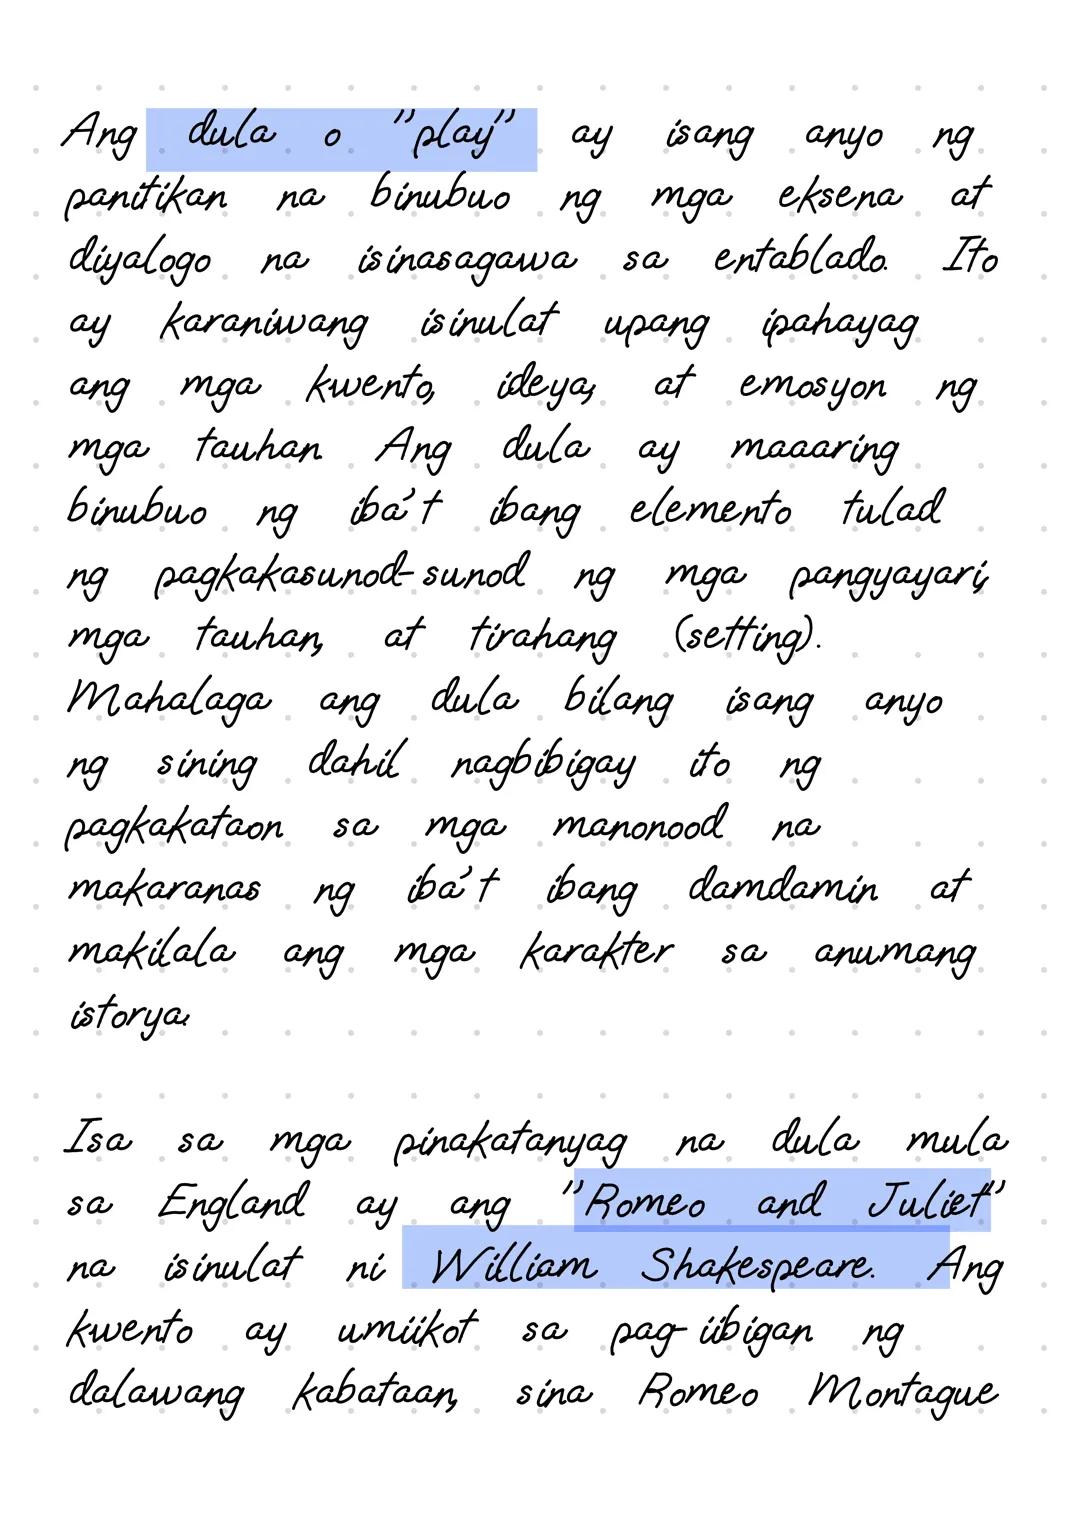 Ang dula o "play" ay isang anyo ng
panitikan na binubuo ng mga eksena at
diyalogo na isinasagawa sa entablado. Ito
ay karaniwang isinulat upang ipahayag
ang mga kwento, ideya, at emosyon ng
mga tauhan. Ang dula ay maaaring
binubuo ng iba't ibang elemento tulad
ng pagkakasunod-sunod ng mga pangyayari,
mga tauhan, at tirahang (setting).
Mahalaga ang dula bilang isang anyo
ng sining dahil nagbibigay ito ng
pagkakataon sa mga manonood na
makaranas ng iba't ibang damdamin at
makilala ang mga karakter sa anumang
istorya.
Isa sa mga pinakatanyag na dula mula
sa England ay ang "Romeo and Juliet"
na isinulat ni William Shakespeare. Ang
kwento ay umiikot sa pag-iibigan ng
dalawang kabataan, sina Romeo Montague